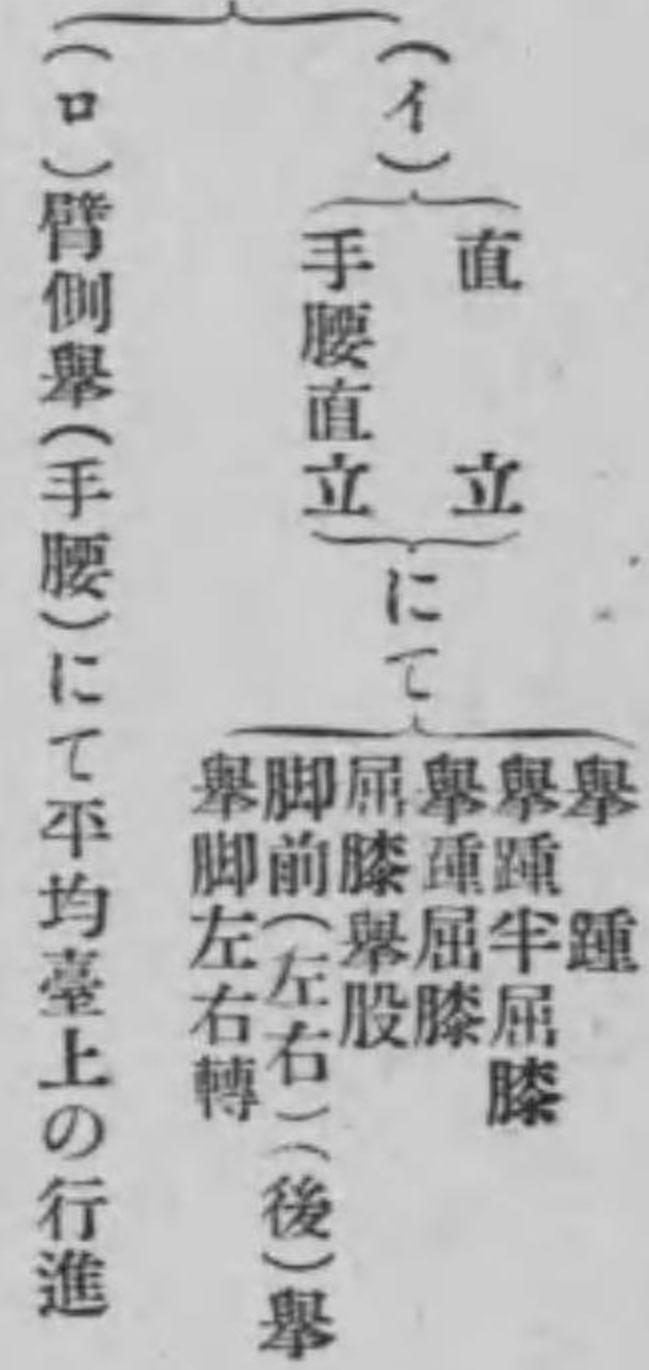 (イ)
直立
手腰直立
にて
擧踵
擧踵半屈膝
擧踵屈膝
屈膝擧股
脚前(左右)(後)擧
擧脚左右轉
(ロ)臂側擧(手腰)にて平均臺上の行進